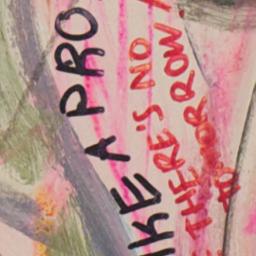 IKE A PRO
THERE'S NO
TOMORROW